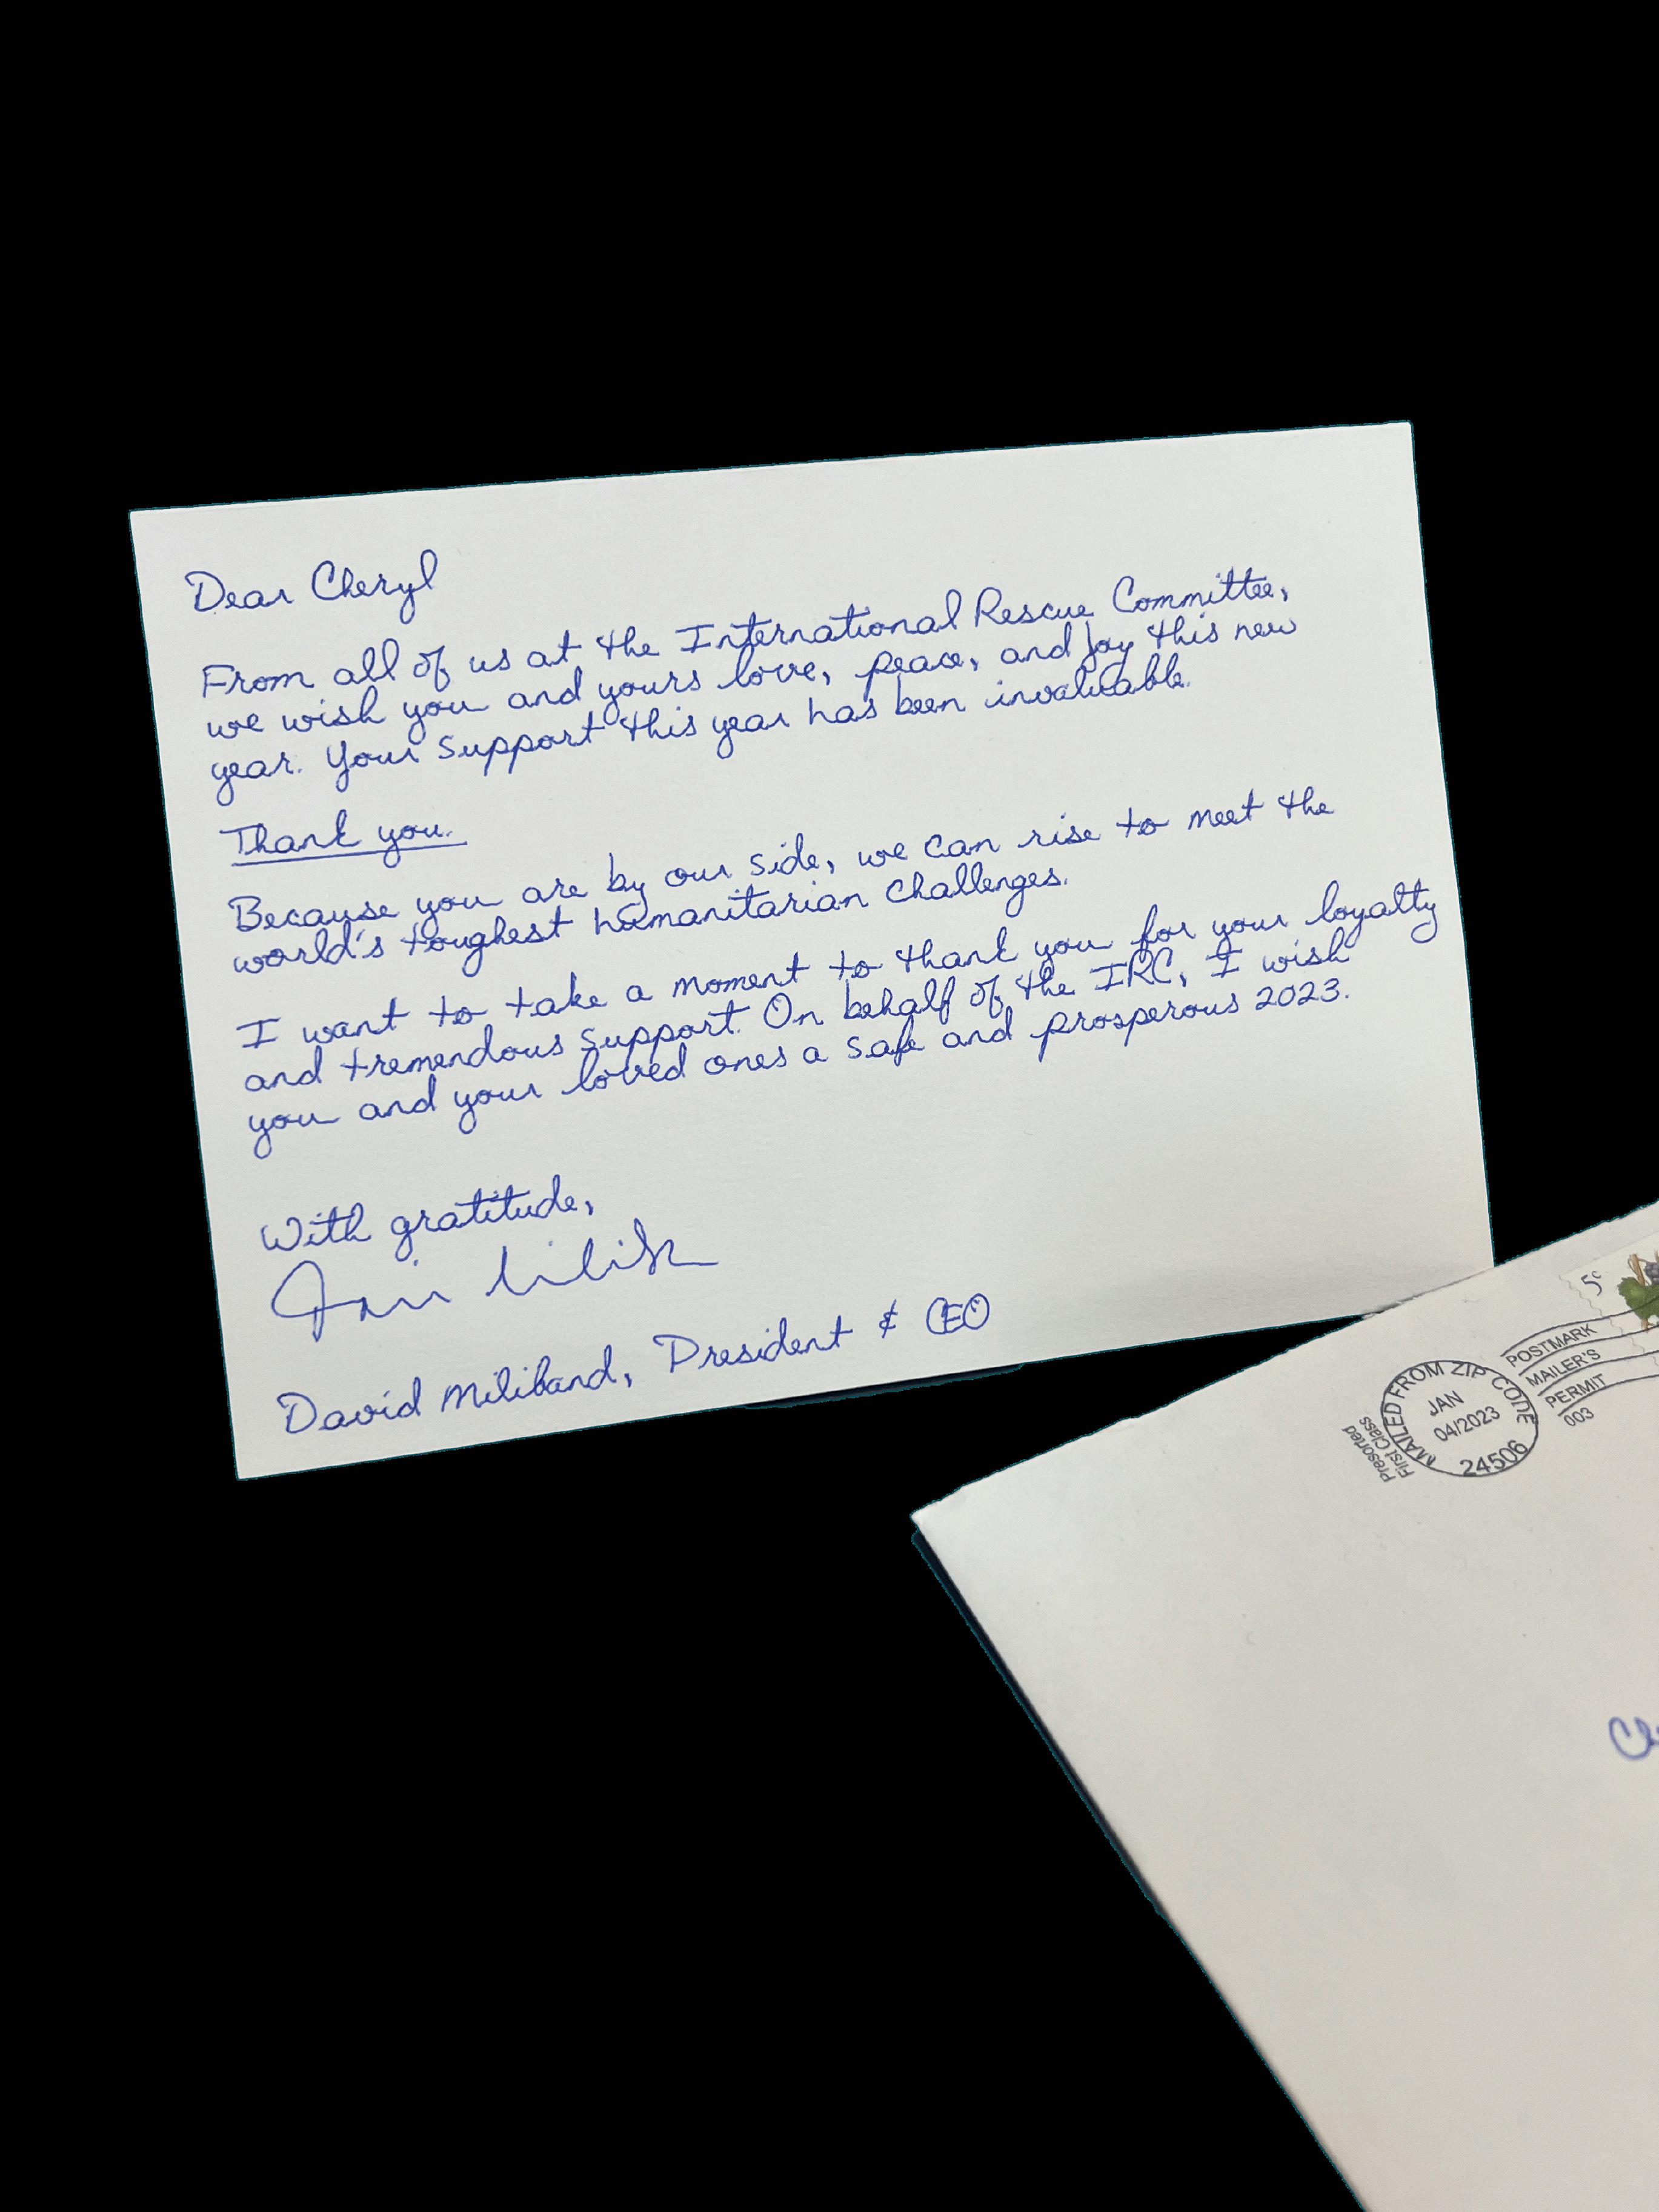 Dear Cheryl
From all of us at the International Rescue Committee,
we wish you and yours love, peace, and joy this new
year. Your support this year has been invaluable.
Thank you.
Because you are by our side, we can rise to meet the
world's toughest humanitarian challenges.
I want to take a moment to thank you for your loyalty
and tremendous support. On behalf of the IRC, I wish
you and your loved ones a safe and prosperous 2023.
With gratitude,
David Miliband, President & CEO
5c
POSTMARK
MAILER'S
PERMIT
003
MAILED FROM ZIP CODE
JAN
04/2023
24506
Presorted
First Class